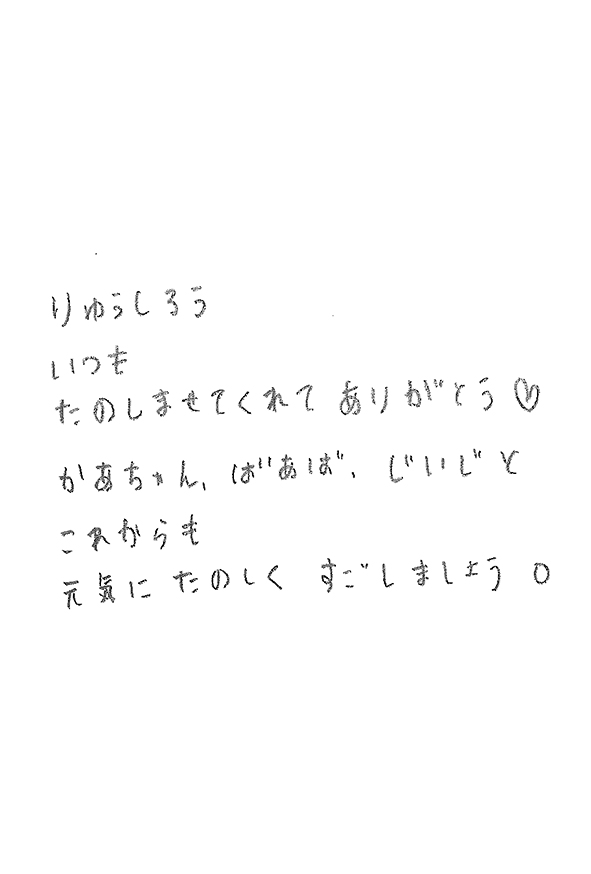 りゅうしろう
いつも
たのしませてくれて ありがとう♡
かあちゃん、ばあば、じいじと
これからも
元気に たのしく すごしましょう。